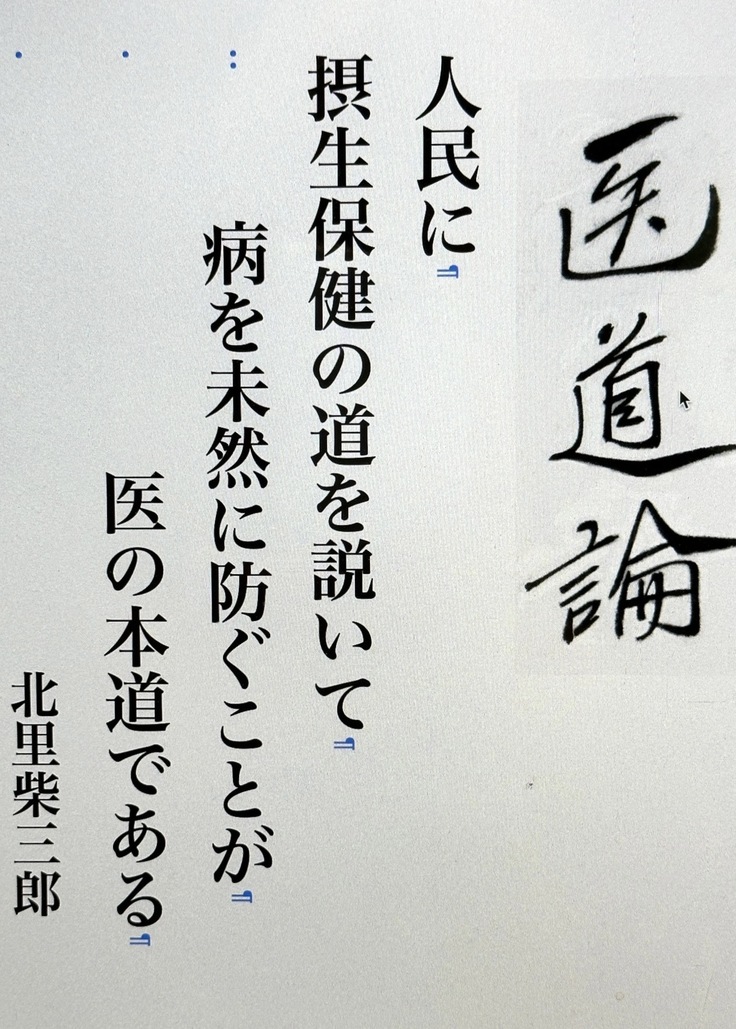 医道論
人民に
摂生保健の道を説いて
病を未然に防ぐことが
医の本道である
北里柴三郎